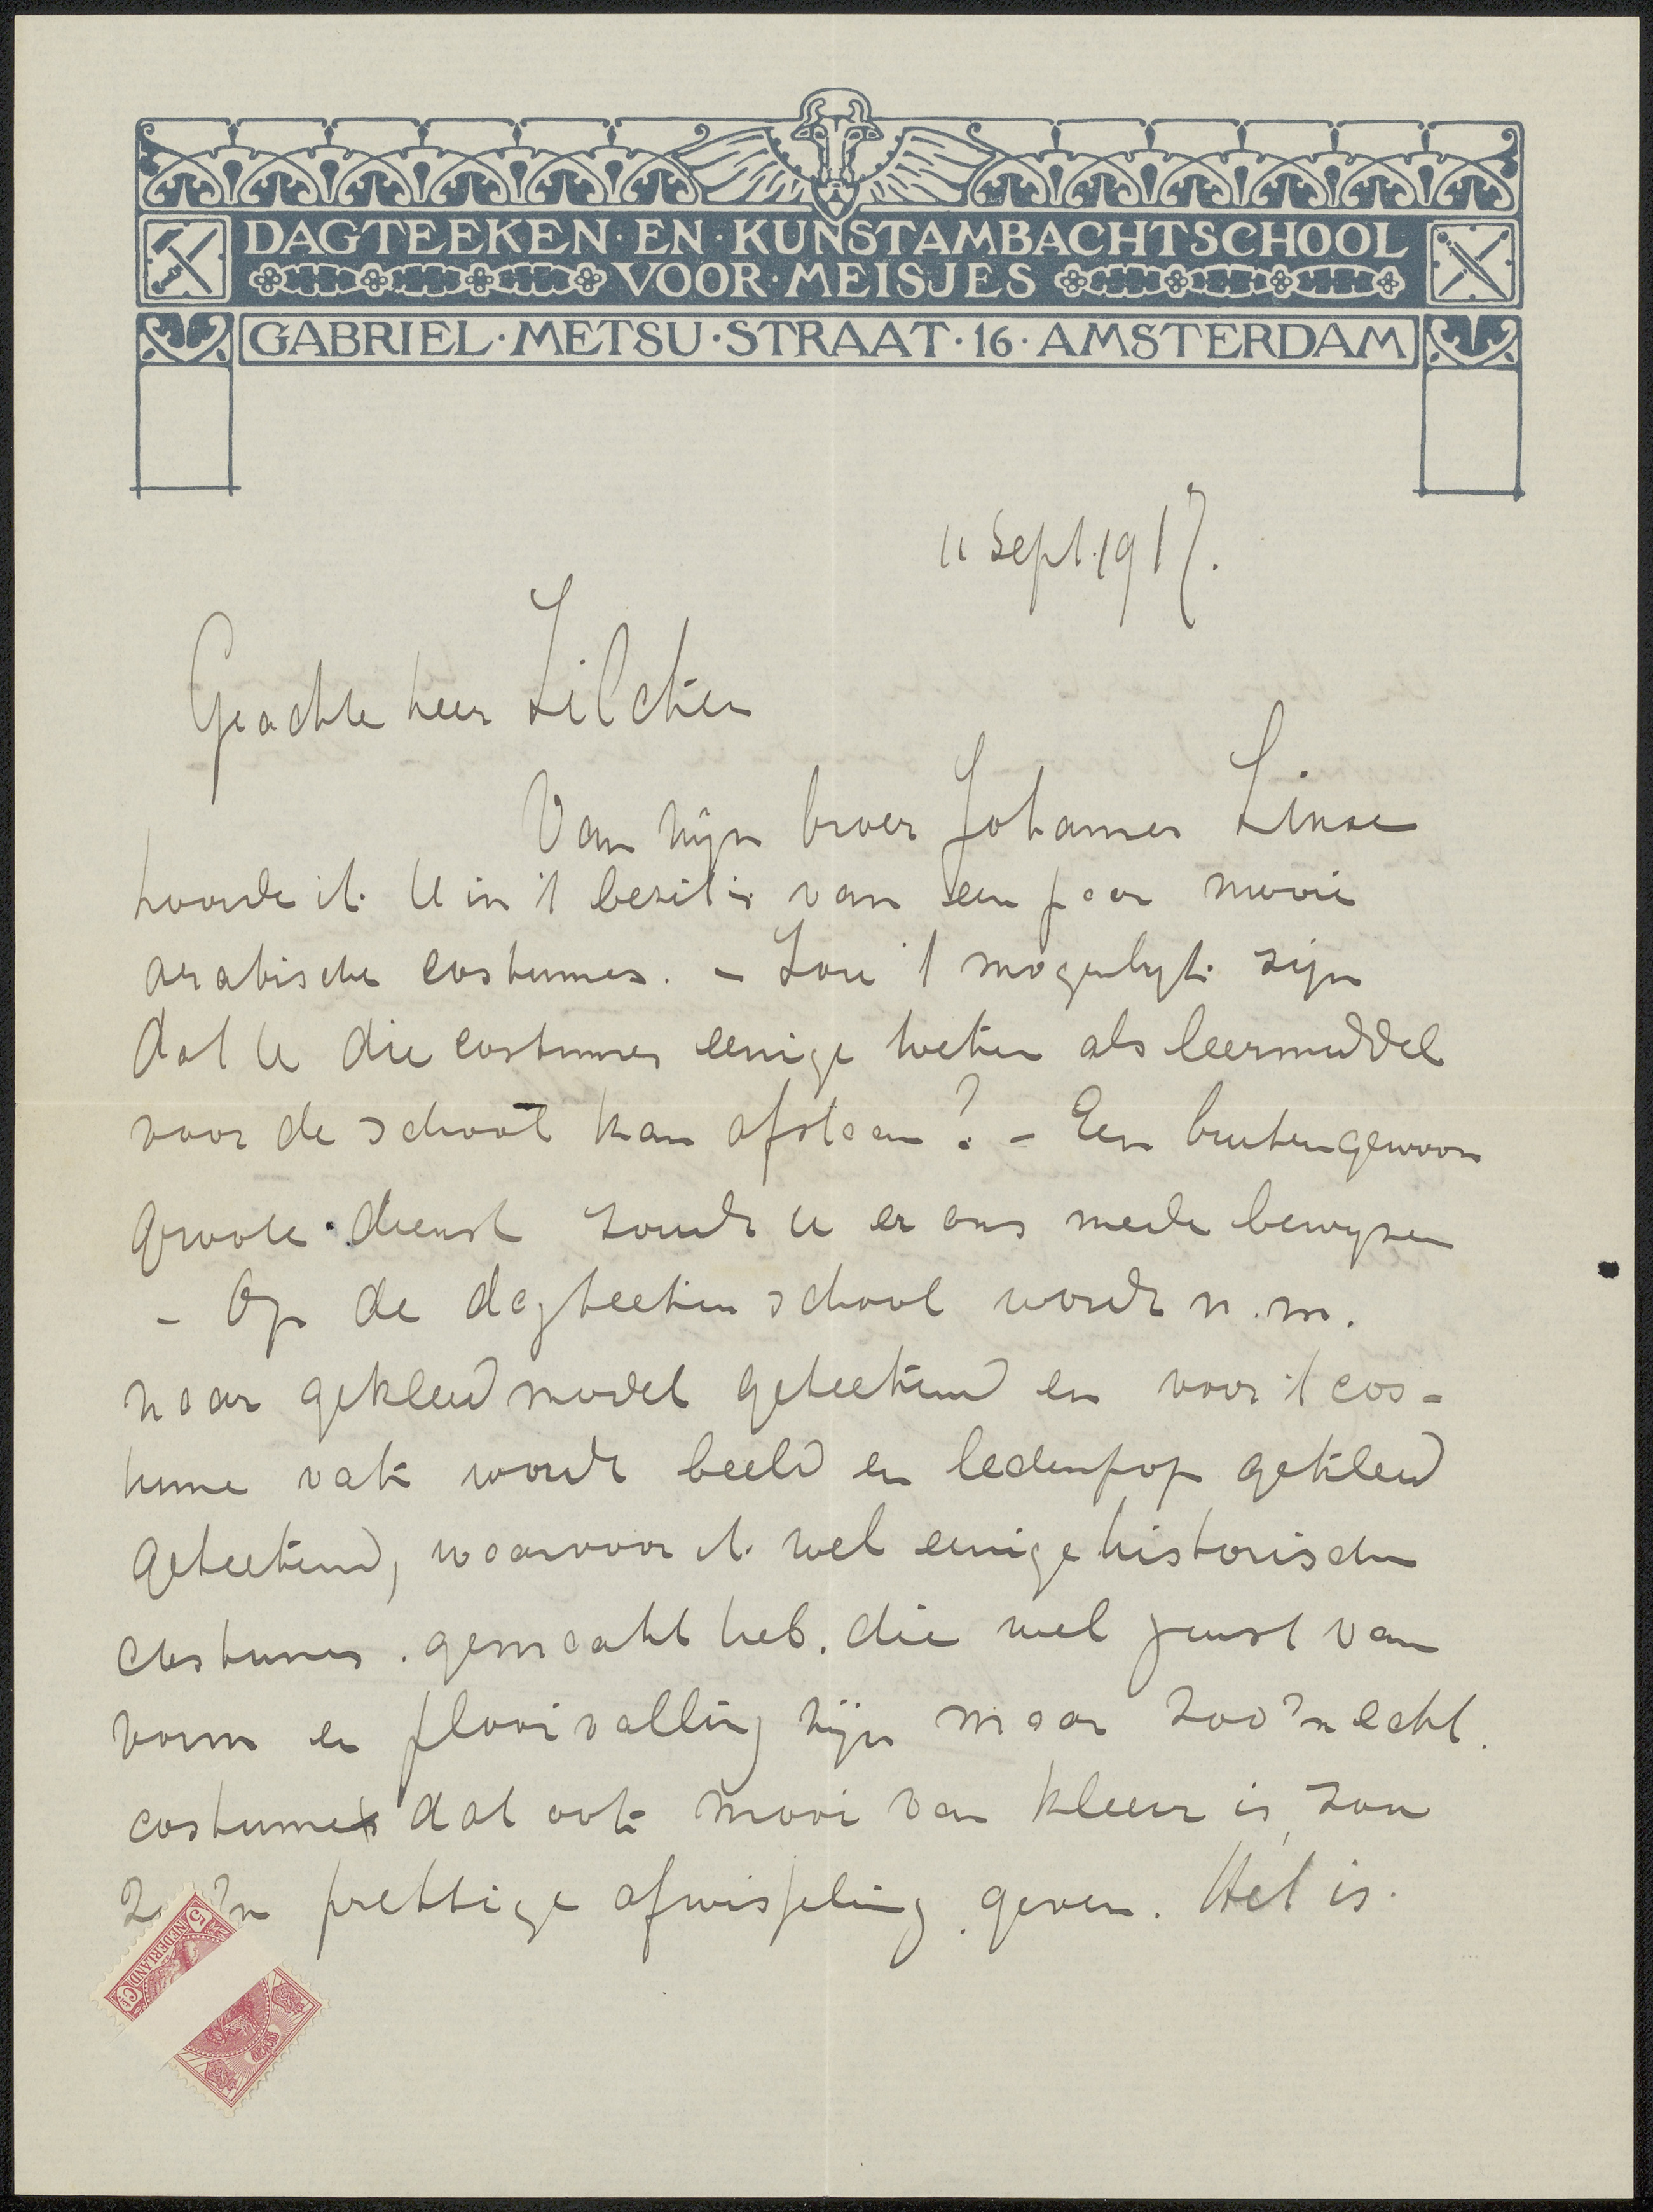 DAGTEEKEN·EN·KUNSTAMBACHTSCHOOL
VOOR·MEISJES
GABRIEL·METSU·STRAAT·16·AMSTERDAM
11 Sept. 1917.
Geachte heer Zilcken
Van mijn broer Johannes Linse
hoorde ik U in 't bezit is van een paar mooie
arabische costumes. – Zou 't mogenlijk zijn
dat U die costumes eenige weken als leermiddel
voor de school kan afstaan? – Een buitengewoon
groote dienst zoudt u er ons mede bewijzen
– Op de dagteekenschool wordt n.m.
naar gekleed model geteekend en voor 't cos-
tume vak wordt beeld en ledenpop gekleed
geteekend, waarvoor ik wel eenige historische
costumes gemaakt heb. die wel juist van
vorm en plooivalling zijn maar zoo'n echt
costume dat ook mooi van kleur is, zou
'n prettige afwisseling geven. Het is
5 NEDERLAND Ct